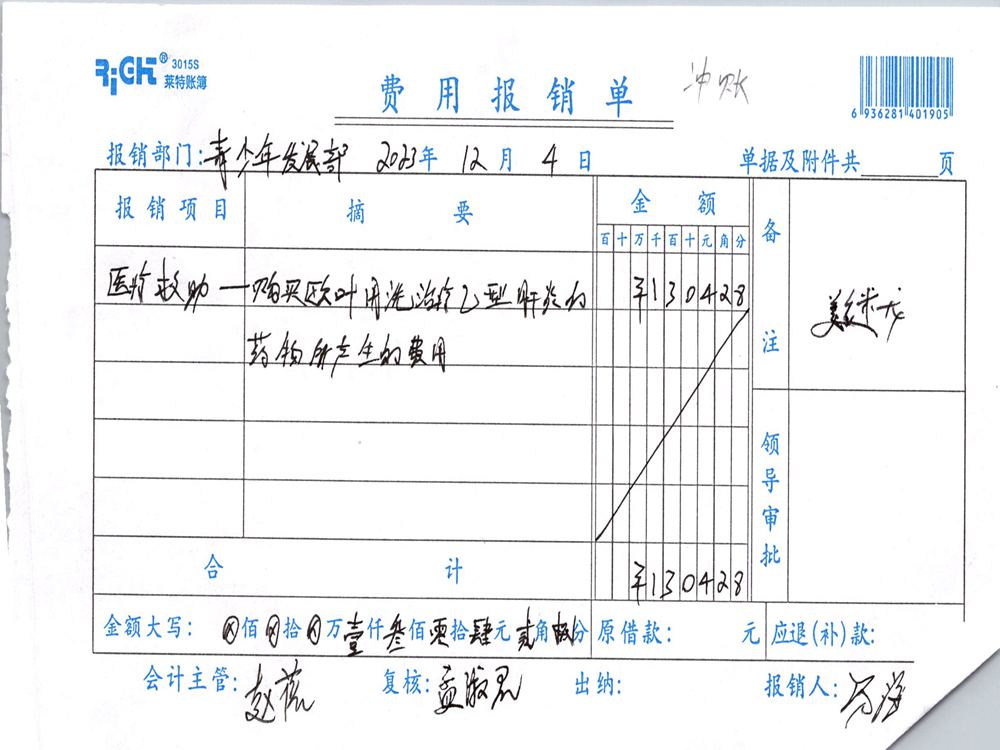 RiGHT® 3015S
莱特账簿
费用报销单 冲账
6 936281 401905
报销部门:青少年发展部 2023年 12月 4日 单据及附件共 页
报销项目 摘要 金额 备注
百十万千百十元角分
医疗救助 一购买欧叶用洗治疗乙型肝炎的 ¥130428
药物所产生的费用
领导审批
合计 ¥130428
金额大写: ⊗佰⊗拾⊗万壹仟叁佰零拾肆元贰角捌分 原借款: 元 应退(补)款:
会计主管: 赵 复核: 孟淑君 出纳: 报销人: 海